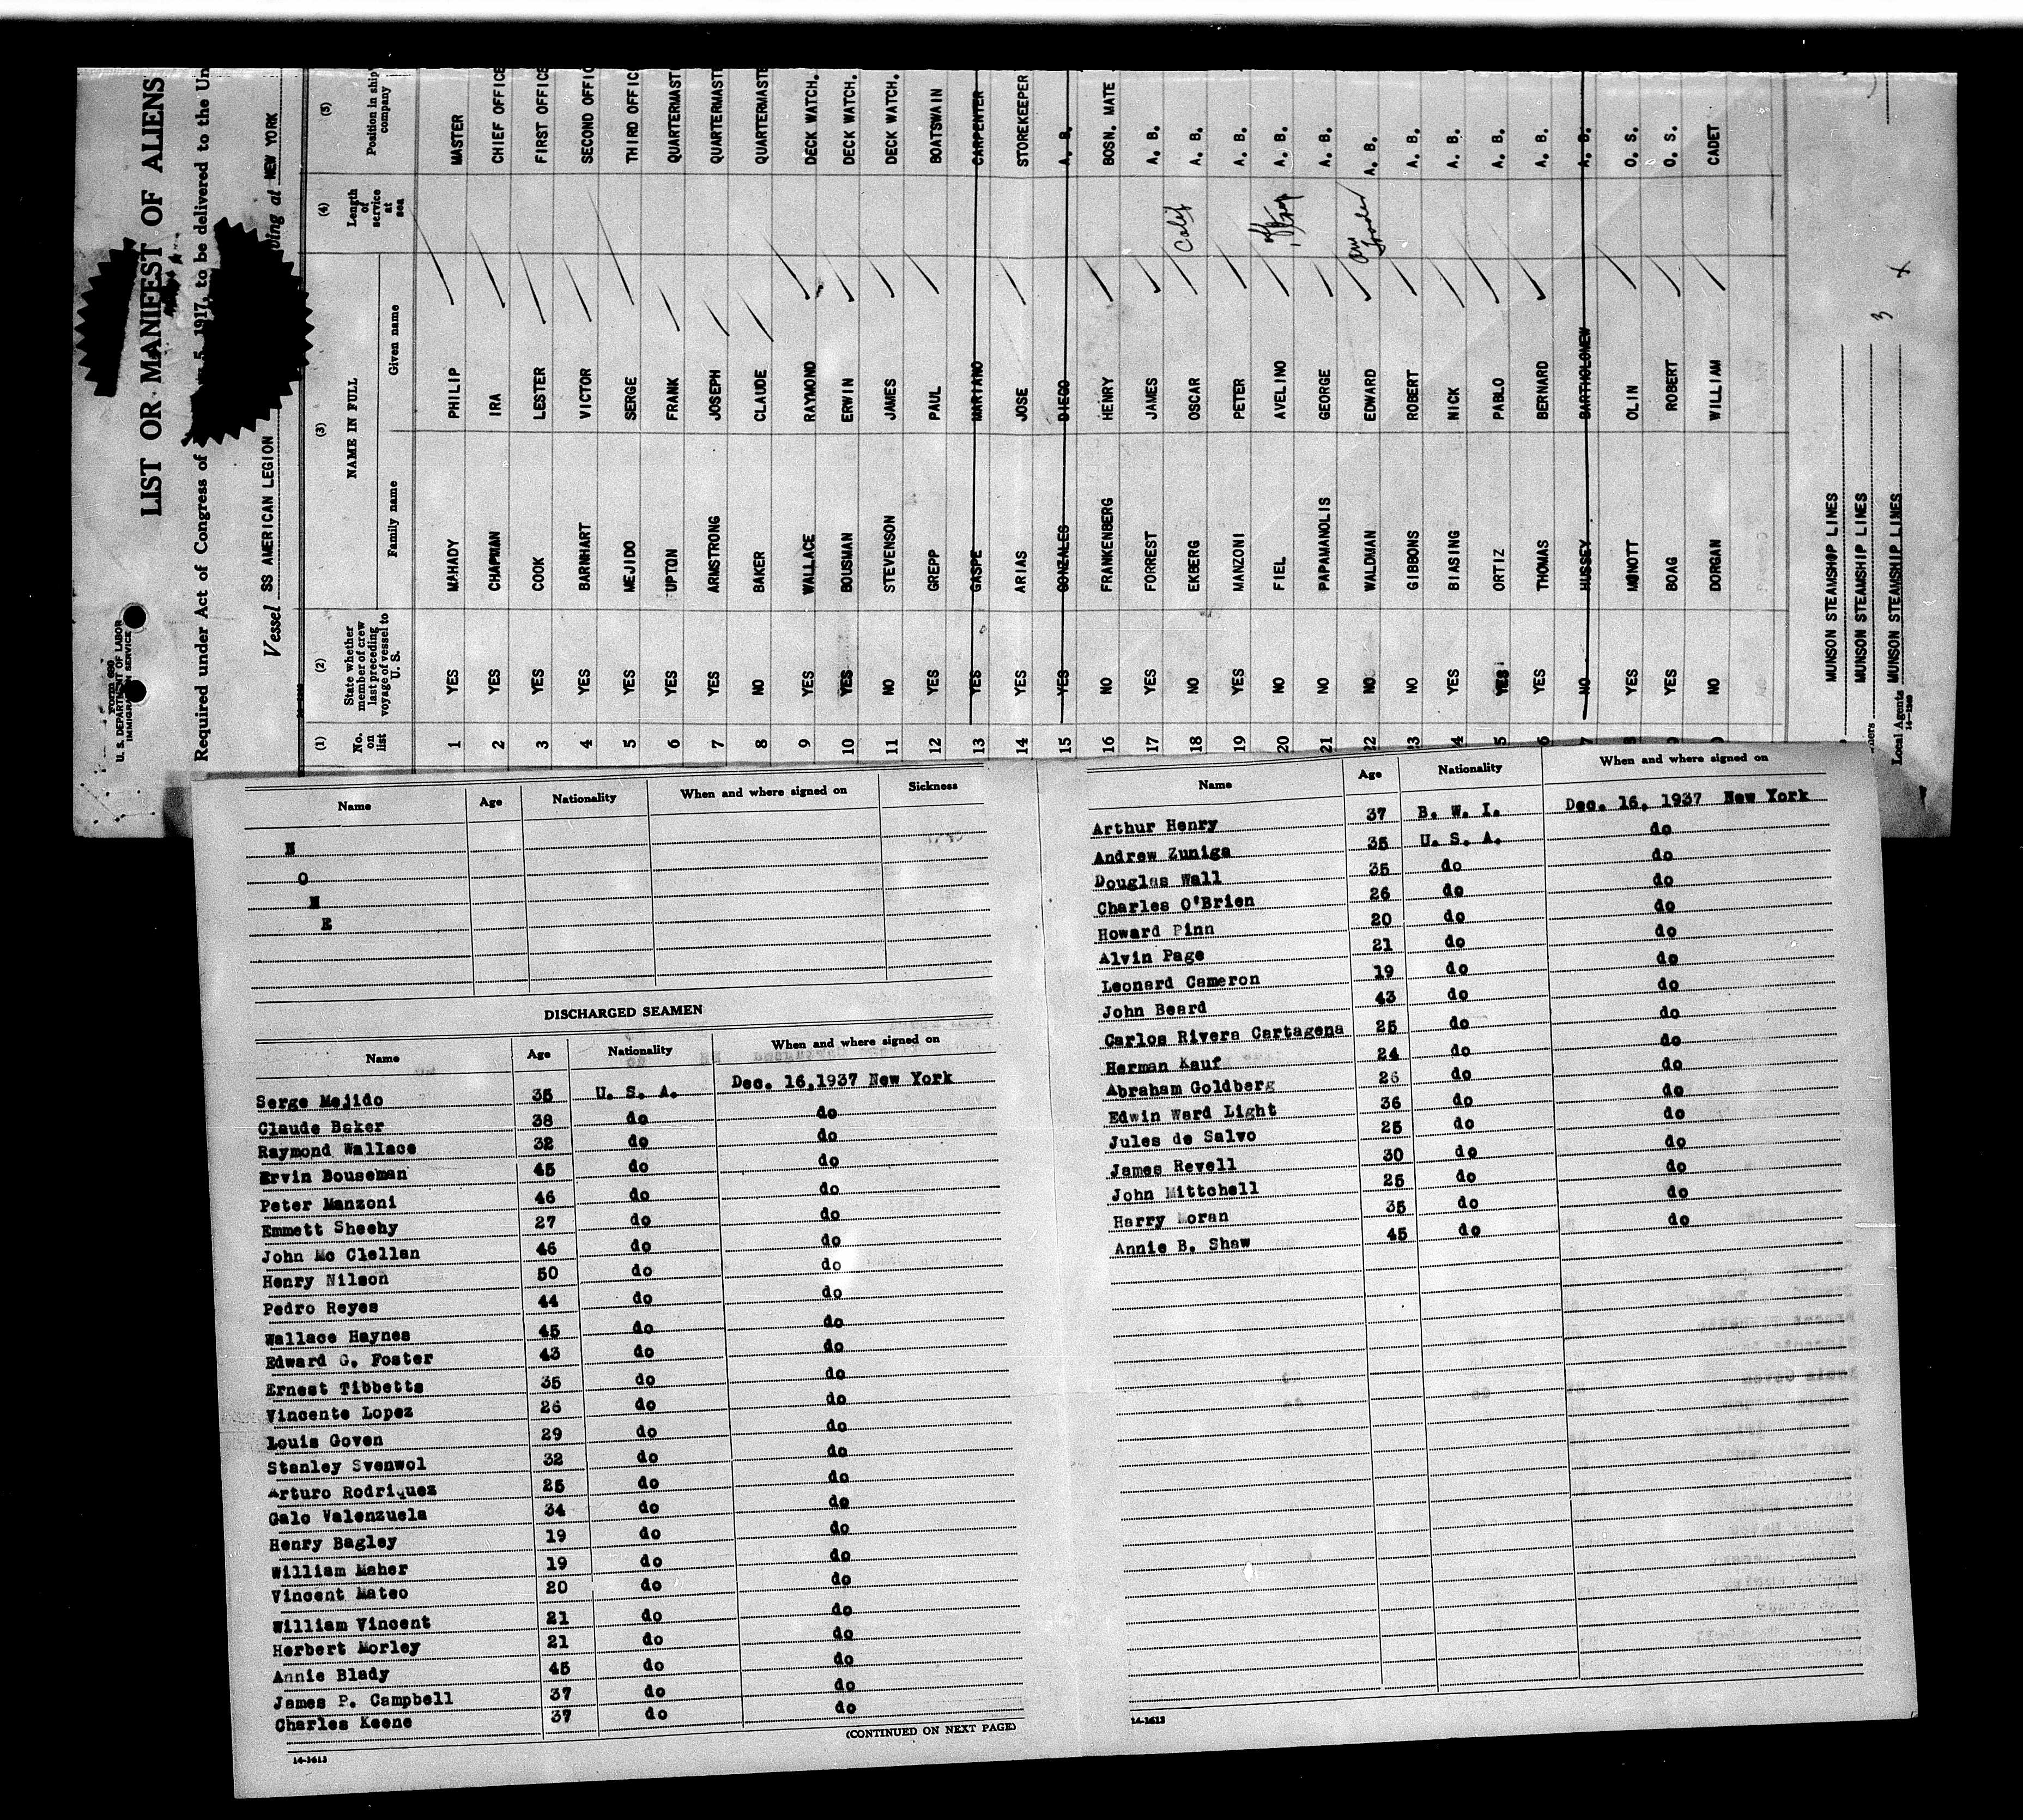 Form 689
U. S. DEPARTMENT OF LABOR
IMMIGRATION SERVICE
LIST OR MANIFEST OF ALIENS
Required under Act of Congress of 5, 1917, to be delivered to the Un
Vessel SS AMERICAN LEGION ving at NEW YORK
(1) (2) (3) (4) (5)
No. on list State whether member of crew last preceding voyage of vessel to U. S. NAME IN FULL Length of service at sea Position in ship's company
Family name Given name
1 YES MAHADY PHILIP MASTER
2 YES CHAPMAN IRA CHIEF OFFICE
3 YES COOK LESTER FIRST OFFICE
4 YES BARNHART VICTOR SECOND OFFIC
5 YES MEJIDO SERGE THIRD OFFIC
6 YES UPTON FRANK QUARTERMAST
7 YES ARMSTRONG JOSEPH QUARTERMASTE
8 NO BAKER CLAUDE QUARTERMASTE
9 YES WALLACE RAYMOND DECK WATCH.
10 YES BOUSMAN ERWIN DECK WATCH.
11 NO STEVENSON JAMES DECK WATCH.
12 YES GREPP PAUL BOATSWAIN
13 YES GASPE MARIANO CARPENTER
14 YES ARIAS JOSE STOREKEEPER
15 YES GONZALES DIEGO A. B.
16 NO FRANKENBERG HENRY BOSN. MATE
17 YES FORREST JAMES A. B.
18 NO EKBERG OSCAR Calif A. B.
19 YES MANZONI PETER A. B.
20 NO FIEL AVELINO A. B.
21 NO PAPAMANOLIS GEORGE A. B.
22 NO WALDMAN EDWARD A. B.
23 NO GIBBONS ROBERT A. B.
4 YES BIASING NICK A. B.
5 YES ORTIZ PABLO A. B.
6 YES THOMAS BERNARD A. B.
7 NO HUSSEY BARTHOLOMEW A. B.
8 YES MONOTT OLIN O. S.
9 YES BOAG ROBERT O. S.
0 NO DORGAN WILLIAM CADET
MUNSON STEAMSHOP LINES
MUNSON STEAMSHIP LINES 3 x
Local Agents MUNSON STEAMSHIP LINES
14-1240
Name Age Nationality When and where signed on Sickness
N
O
N
E
DISCHARGED SEAMEN
Name Age Nationality When and where signed on
Serge Mejido 35 U. S. A. Dec. 16,1937 New York
Claude Baker 38 do do
Raymond Wallace 32 do do
Ervin Bouseman 45 do do
Peter Manzoni 46 do do
Emmett Sheehy 27 do do
John Mc Clellan 46 do do
Henry Nilson 50 do do
Pedro Reyes 44 do do
Wallace Haynes 45 do do
Edward G. Foster 43 do do
Ernest Tibbetts 35 do do
Vincente Lopez 26 do do
Louis Goven 29 do do
Stanley Svenwol 32 do do
Arturo Rodriquez 25 do do
Galo Valenzuela 34 do do
Henry Bagley 19 do do
William Maher 19 do do
Vincent Mateo 20 do do
William Vincent 21 do do
Herbert Morley 21 do do
Annie Blady 45 do do
James P. Campbell 37 do do
Charles Keene 37 do do
(CONTINUED ON NEXT PAGE)
14-1613
Name Age Nationality When and where signed on
Arthur Henry 37 B. W. I. Dec. 16, 1937 New York
Andrew Zuniga 35 U. S. A. do
Douglas Wall 35 do do
Charles O'Brien 26 do do
Howard Pinn 20 do do
Alvin Page 21 do do
Leonard Cameron 19 do do
John Beard 43 do do
Carlos Rivera Cartagena 25 do do
Herman Kauf 24 do do
Abraham Goldberg 26 do do
Edwin Ward Light 36 do do
Jules de Salvo 25 do do
James Revell 30 do do
John Mittchell 25 do do
Harry Moran 35 do do
Annie B. Shaw 45 do do
14-1613